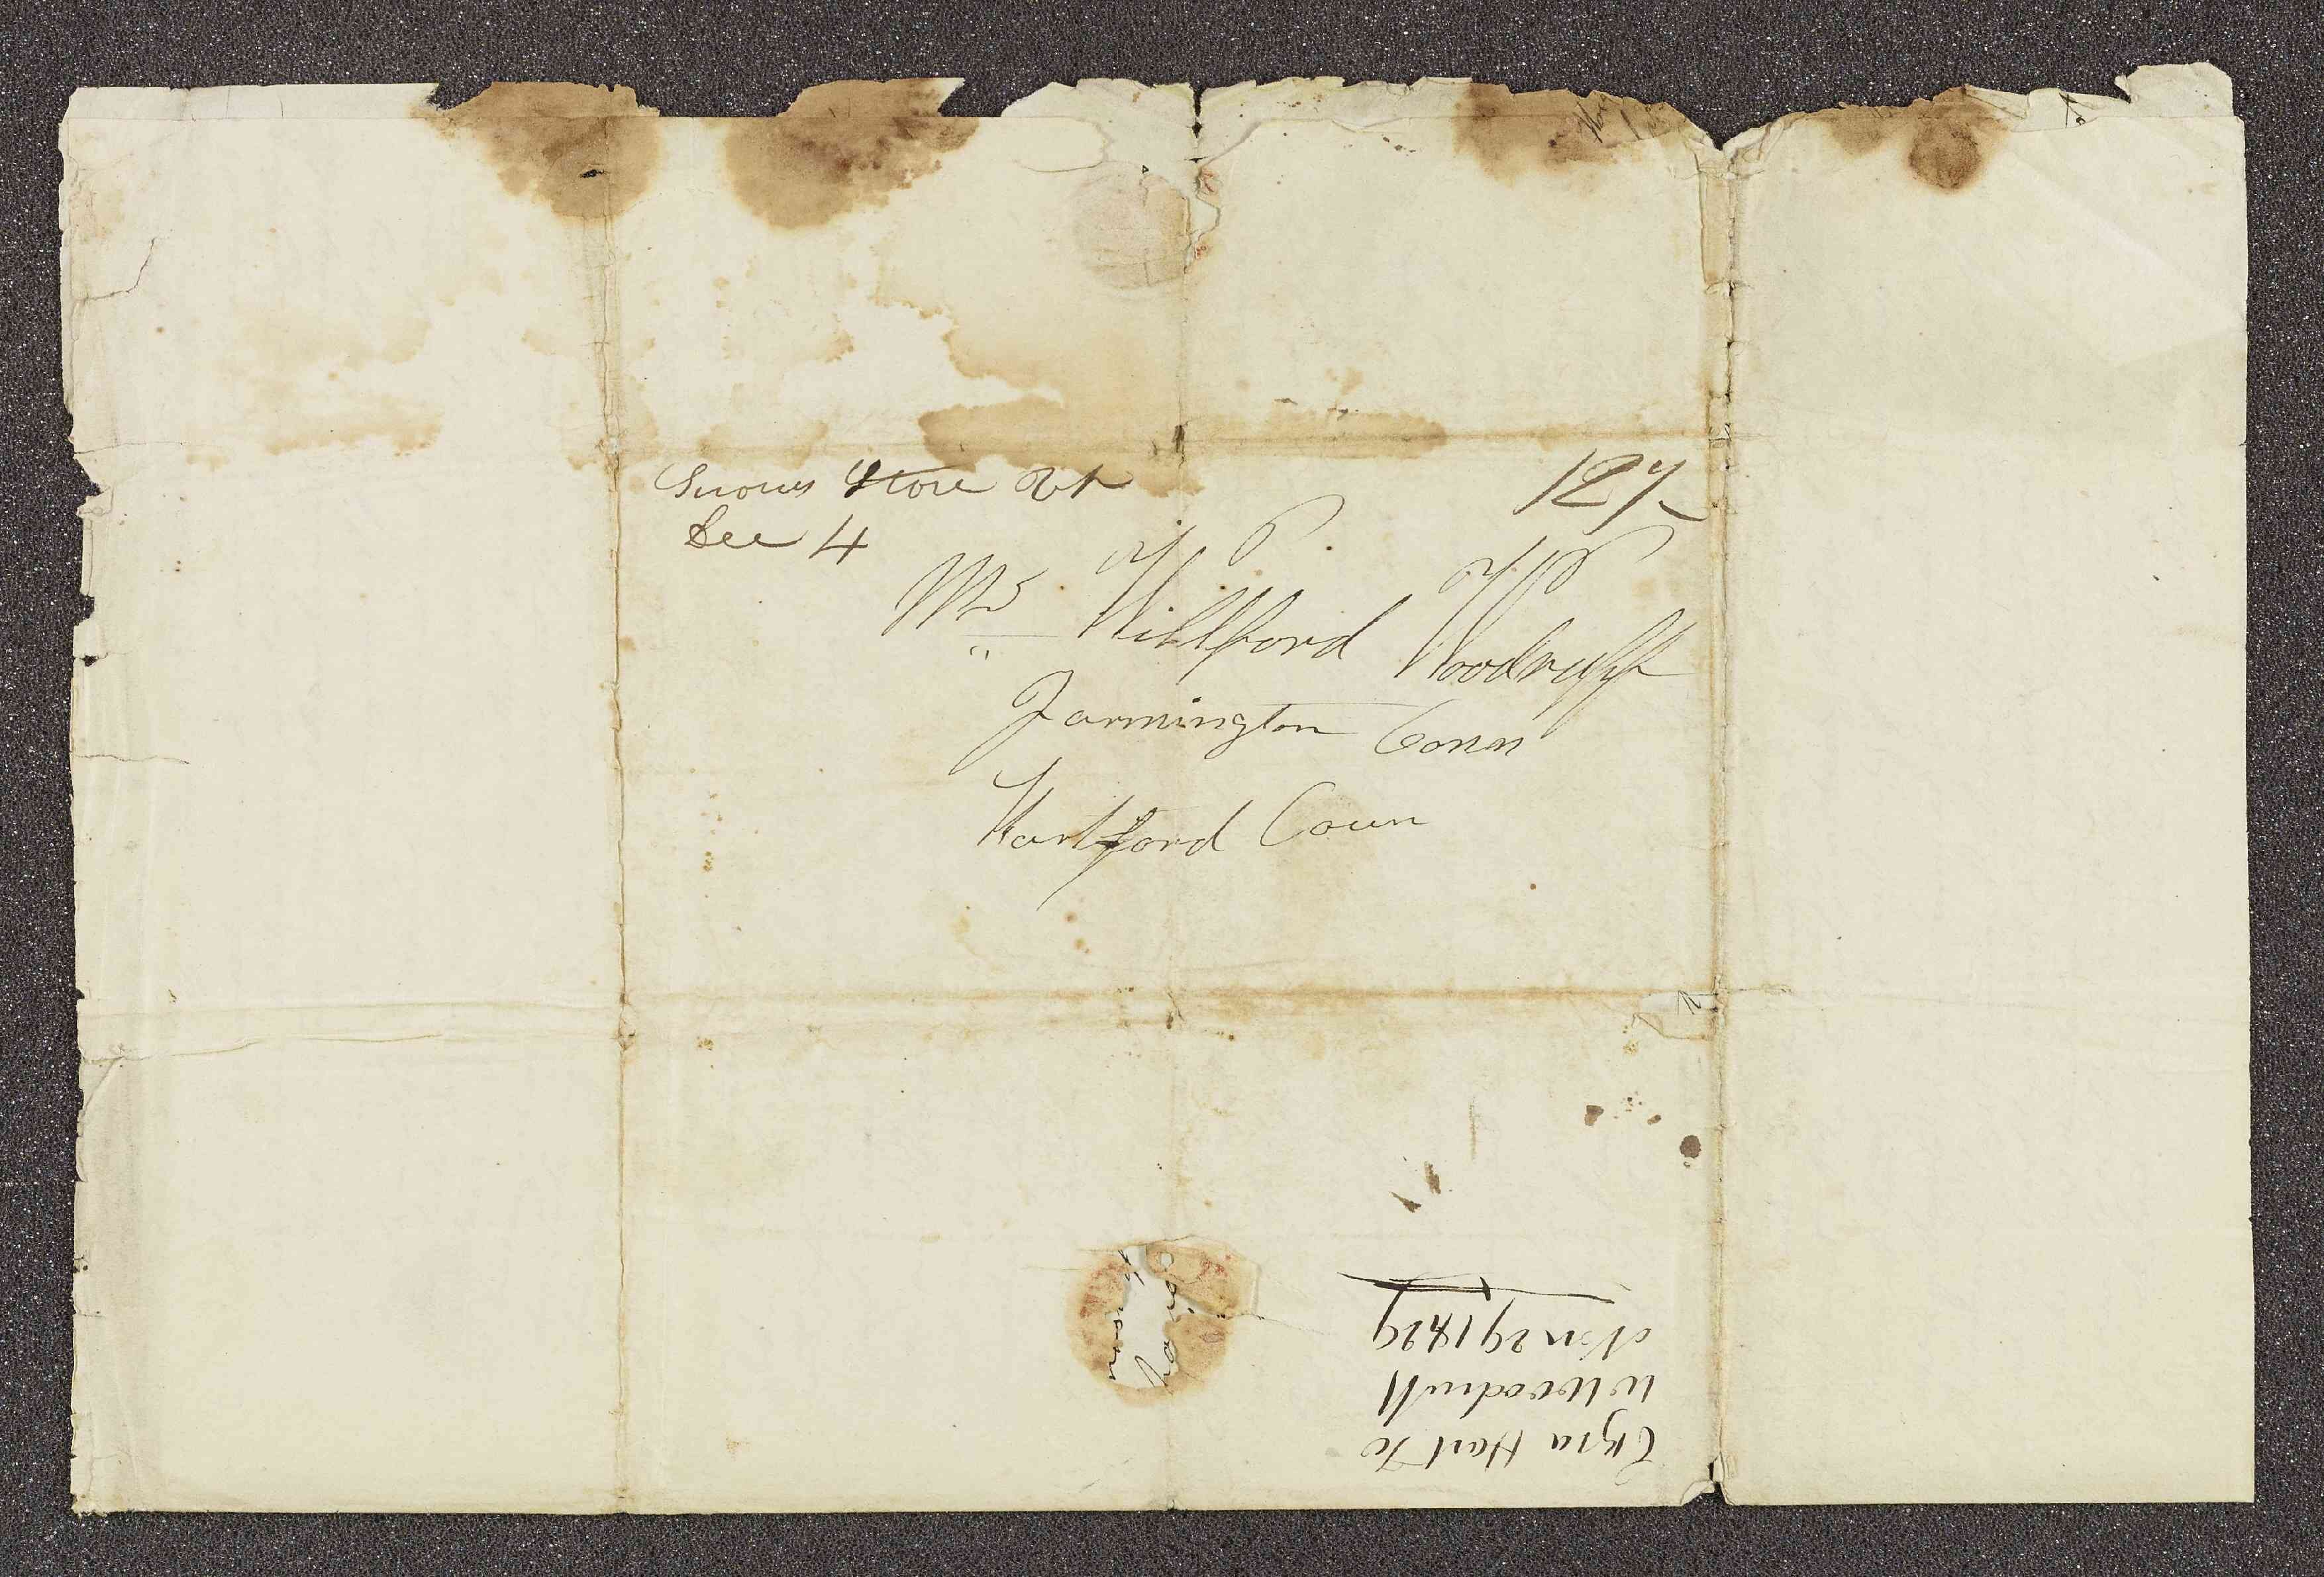 Snows Store Vt
Dec 4
12½
Mr Willford Woodruff
Farmington Conn
Hartford Coun
Ezra Hart to
W Woodruff
Nov 29 1829